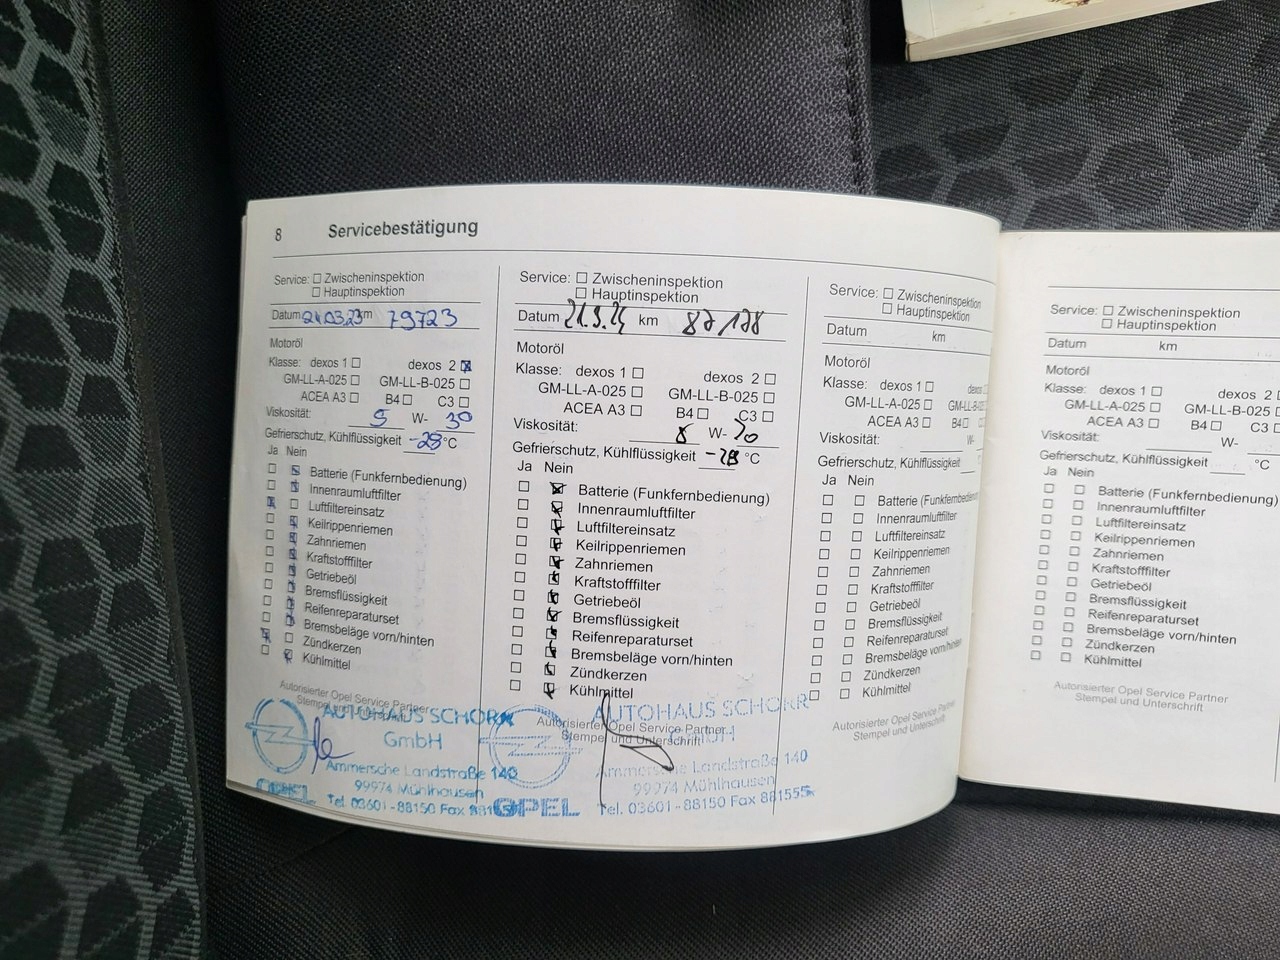 8 Servicebestätigung
Service: ☐ Zwischeninspektion
☐ Hauptinspektion
Datum 24.03.23 km 79723
Motoröl
Klasse: dexos 1 ☐ dexos 2 ☒
GM-LL-A-025 ☐ GM-LL-B-025 ☐
ACEA A3 ☐ B4 ☐ C3 ☐
Viskosität: 5 W- 30
Gefrierschutz, Kühlflüssigkeit -28 °C
Ja Nein
☐ ☒ Batterie (Funkfernbedienung)
☐ ☒ Innenraumluftfilter
☒ ☐ Luftfiltereinsatz
☐ ☒ Keilrippenriemen
☐ ☒ Zahnriemen
☐ ☒ Kraftstofffilter
☐ ☒ Getriebeöl
☐ ☒ Bremsflüssigkeit
☐ ☒ Reifenreparaturset
☐ ☒ Bremsbeläge vorn/hinten
☒ ☐ Zündkerzen
☐ ☒ Kühlmittel
Autorisierter Opel Service Partner
Stempel und Unterschrift
AUTOHAUS SCHORR
GmbH
Ammersche Landstraße 140
99974 Mühlhausen
OPEL Tel. 03601-88150 Fax
Service: ☐ Zwischeninspektion
☐ Hauptinspektion
Datum km
Motoröl
Klasse: dexos 1 ☐ dexos 2 ☐
GM-LL-A-025 ☐ GM-LL-B-025 ☐
ACEA A3 ☐ B4 ☐ C3 ☐
Viskosität: W-
Gefrierschutz, Kühlflüssigkeit -28 °C
Ja Nein
☐ ☒ Batterie (Funkfernbedienung)
☐ ☒ Innenraumluftfilter
☐ ☒ Luftfiltereinsatz
☐ ☒ Keilrippenriemen
☐ ☒ Zahnriemen
☐ ☒ Kraftstofffilter
☐ ☒ Getriebeöl
☐ ☒ Bremsflüssigkeit
☐ ☒ Reifenreparaturset
☐ ☒ Bremsbeläge vorn/hinten
☐ ☒ Zündkerzen
☐ ☒ Kühlmittel
Autorisierter Opel Service Partner
Stempel und Unterschrift
AUTOHAUS SCHORR
Ammersche Landstraße 140
99974 Mühlhausen
OPEL Tel. 03601-88150 Fax 881555
Service: ☐ Zwischeninspektion
☐ Hauptinspektion
Datum km
Motoröl
Klasse: dexos 1 ☐
GM-LL-A-025 ☐
ACEA A3 ☐ B4 ☐
Viskosität: W-
Gefrierschutz, Kühlflüssigkeit
Ja Nein
☐ ☐ Batterie
☐ ☐ Innenraumluftfilter
☐ ☐ Luftfiltereinsatz
☐ ☐ Keilrippenriemen
☐ ☐ Zahnriemen
☐ ☐ Kraftstofffilter
☐ ☐ Getriebeöl
☐ ☐ Bremsflüssigkeit
☐ ☐ Reifenreparaturset
☐ ☐ Bremsbeläge vorn/hinten
☐ ☐ Zündkerzen
☐ ☐ Kühlmittel
Autorisierter Opel Service Partner
Stempel und Unterschrift
Service: ☐ Zwischeninspektion
☐ Hauptinspektion
Datum km
Motoröl
Klasse: dexos 1 ☐ dexos 2
GM-LL-A-025 ☐ GM-LL-B-025
ACEA A3 ☐ B4 ☐ C3
Viskosität: W-
Gefrierschutz, Kühlflüssigkeit °C
Ja Nein
☐ ☐ Batterie (Funkfernbedienung)
☐ ☐ Innenraumluftfilter
☐ ☐ Luftfiltereinsatz
☐ ☐ Keilrippenriemen
☐ ☐ Zahnriemen
☐ ☐ Kraftstofffilter
☐ ☐ Getriebeöl
☐ ☐ Bremsflüssigkeit
☐ ☐ Reifenreparaturset
☐ ☐ Bremsbeläge vorn/hinten
☐ ☐ Zündkerzen
☐ ☐ Kühlmittel
Autorisierter Opel Service Partner
Stempel und Unterschrift